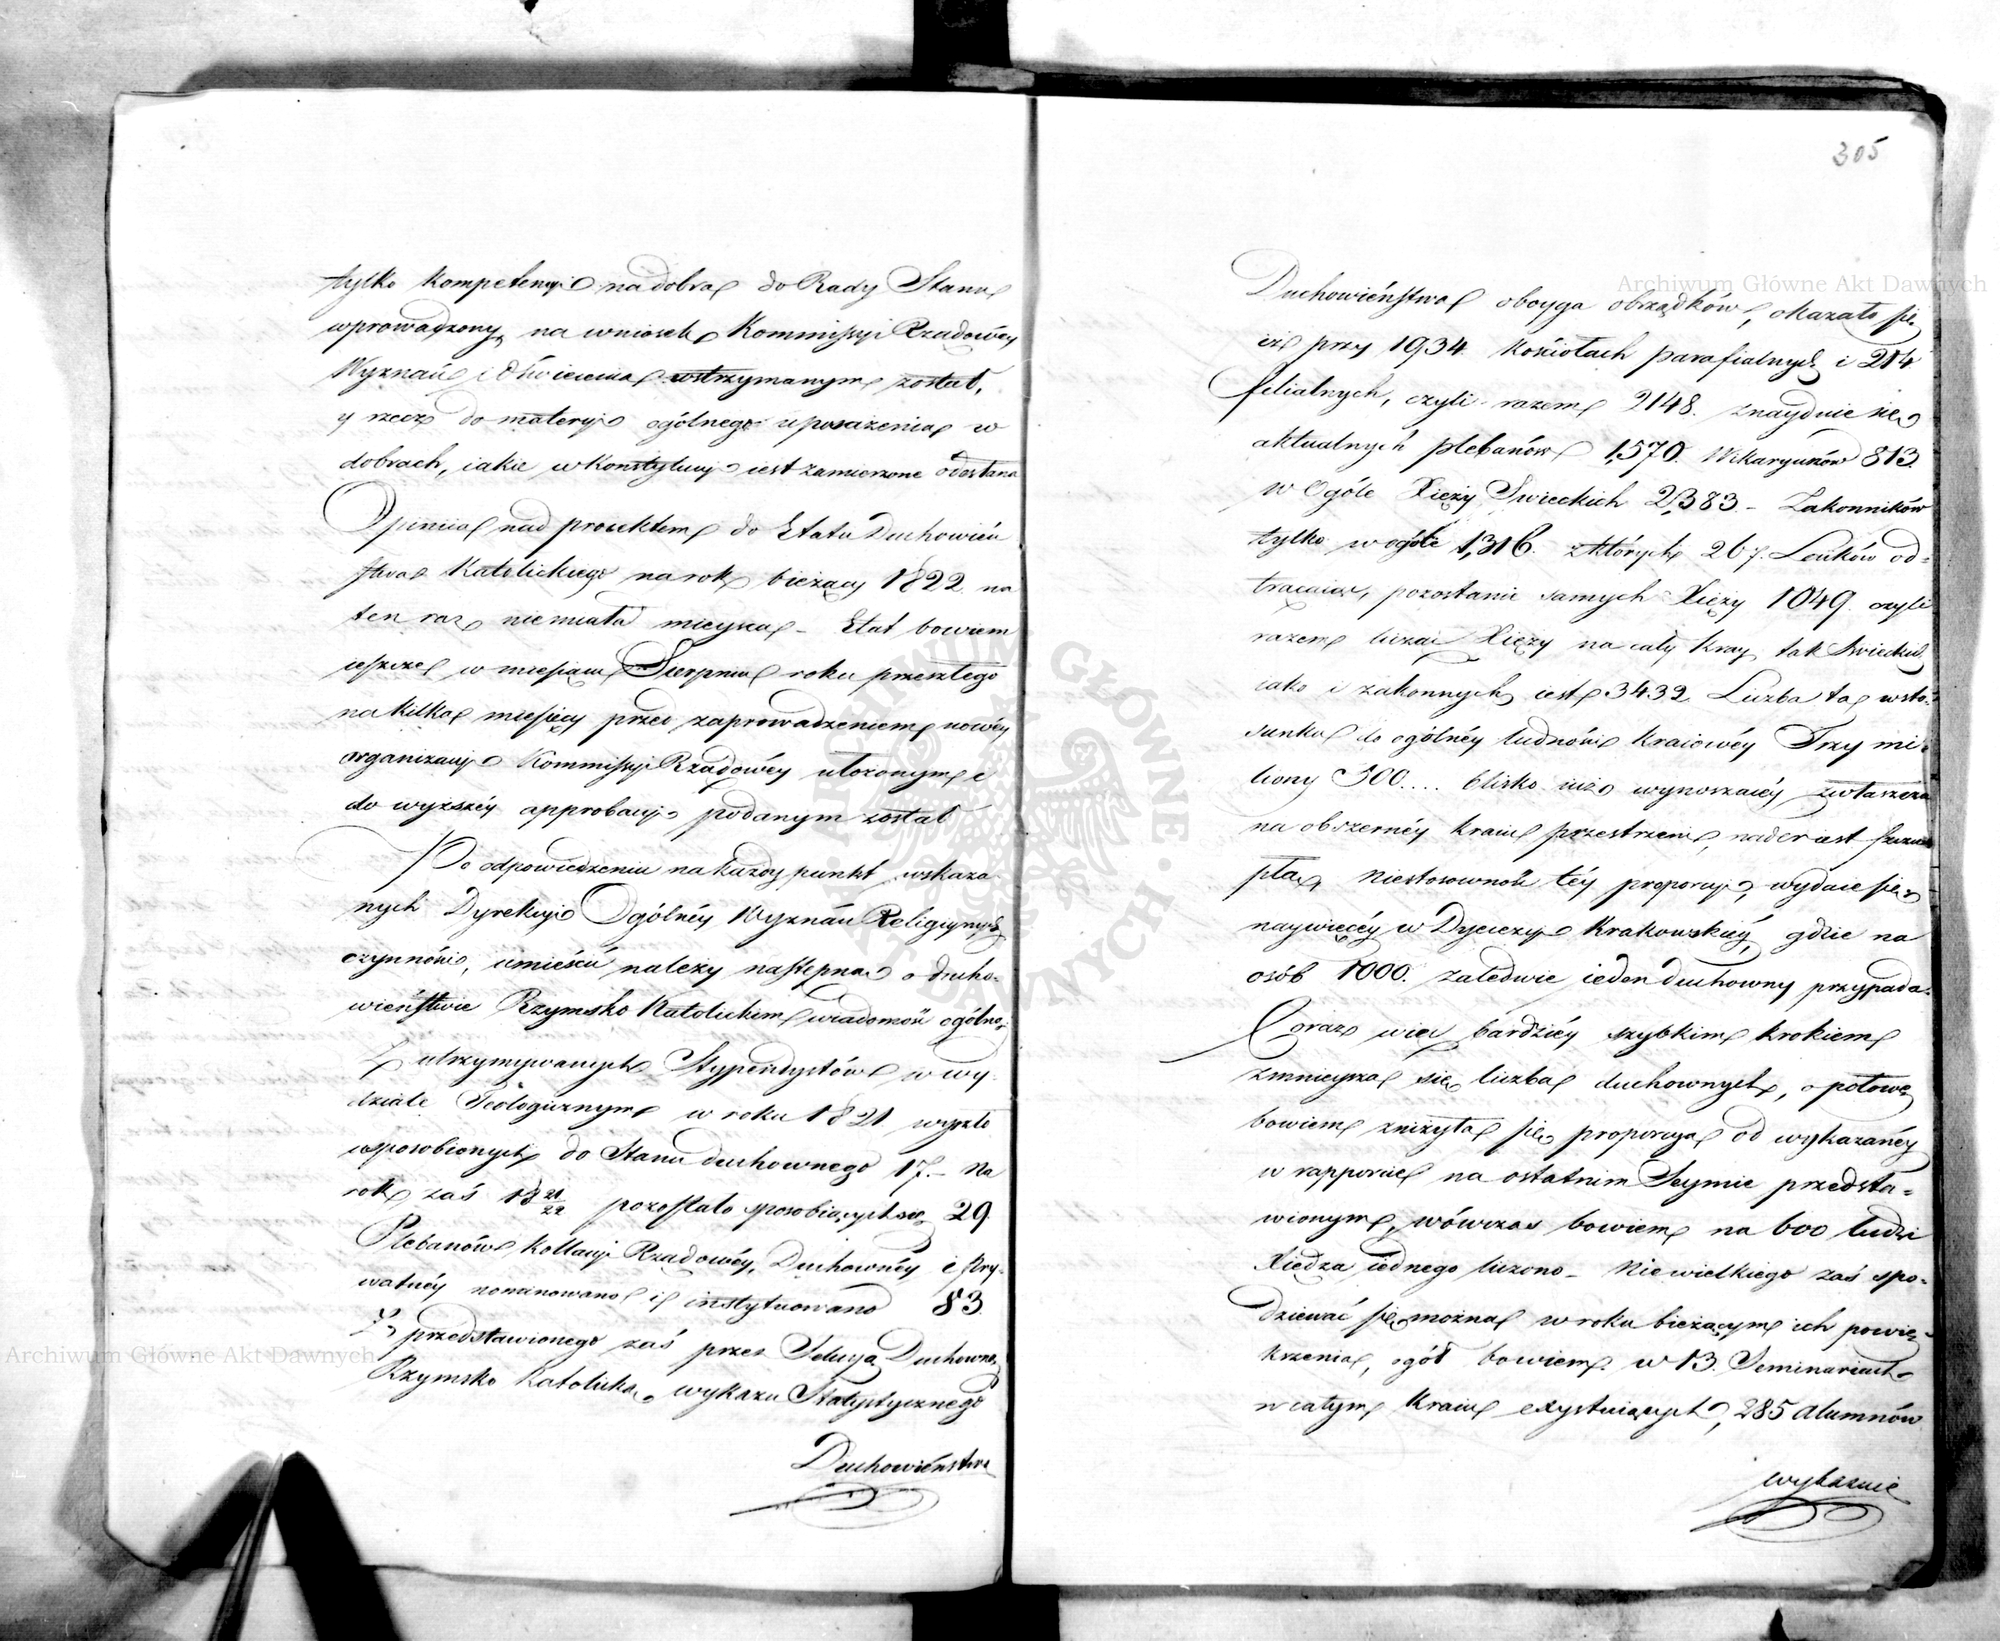 tylko kompetencyi na dobra do Rady Stanu
wprowadzony, na wniosek Kommissyi Rządowéy
Wyznań i Oświecenia wstrzymanym został,
y rzecz do materyi ogólnego uposażenia w
dobrach, iakie w Konstytucyi iest zamierzone odesłana
Opinia nad proiektem do Etatu Duchowień
stwa Katolickiego na rok bieżący 1822 na
ten raz nie miała mieysca – Etat bowiem
ieszcze w miesiącu Sierpniu roku przeszłego
na kilka miesięcy przed zaprowadzeniem nowéy
organizacyi Kommissyi Rządowéy ułożonym i
do wyższéy approbacyi podanym został
Po odpowiedzeniu na każdy punkt wskaza
nych Dyrekcyi Ogólnéy Wyznań Religiynych
czynności, umieścić należy następną o ducho-
wieństwie Rzymsko Katolickim wiadomość ogólną.
Z utrzymywanych Stypendystów w wy-
dziale Teologicznym w roku 1821 wyszło
usposobionych do Stanu duchownego 17. – Na
rok zaś 18 21/22 pozostało sposobiących się 29.
Plebanów kollacyi Rządowéy, Duchownéy i Pry-
watnéy nominowano i instytuowano 83
Z przedstawionego zaś przez Sekcyą Duchowną
Rzymsko Katolicką wykazu Statystycznego
Duchowieństwa
305
Duchowieństwa oboyga obrządków, okazało się
iż przy 1934. kościołach parafialnych i 214
filialnych, czyli razem 2148. znayduie się
aktualnych plebanów 1,570. Wikaryuszów 813.
w Ogóle Xięży Swieckich 2,383 – Zakonników
tylko w ogóle 1,316. z których 267. Laików od-
trącaiąc, pozostanie samych Xięży 1049. czyli
razem licząc Xięży na cały kray tak Swieckich
iako i zakonnych iest 3432. Liczba ta w sto-
sunku do ogólnéy ludności kraiowéy Trzy mi-
liony 500.... blisko iuż wynoszącéy zwłaszcza
na obszernéy kraiu przestrzeni, nader iest szczu
pła, Niestosowność téy proporcyi, wydaie się
naywięcéy w Dyecezyi Krakowskiéy, gdzie na
osób 1000. zaledwie ieden duchowny przypada.
Coraz więc bardziéy szybkim krokiem
zmnieysza się liczba duchownych, o połowę
bowiem zniżyła się proporcya od wykazanéy
w rapporcie na ostatnim Seymie przedsta-
wionym, wówczas bowiem na 600 ludzi
Xiędza iednego liczono – Nie wielkiego zaś spo-
dziewać się można w roku bieżącym ich powię-
kszenia, ogół bowiem w 13. Seminariach
w całym Kraiu exystuiących, 285 Alumnów
wykazuie
Archiwum Główne Akt Dawnych
Archiwum Główne Akt Dawnych
ARCHIWUM GŁÓWNE AKT DAWNYCH